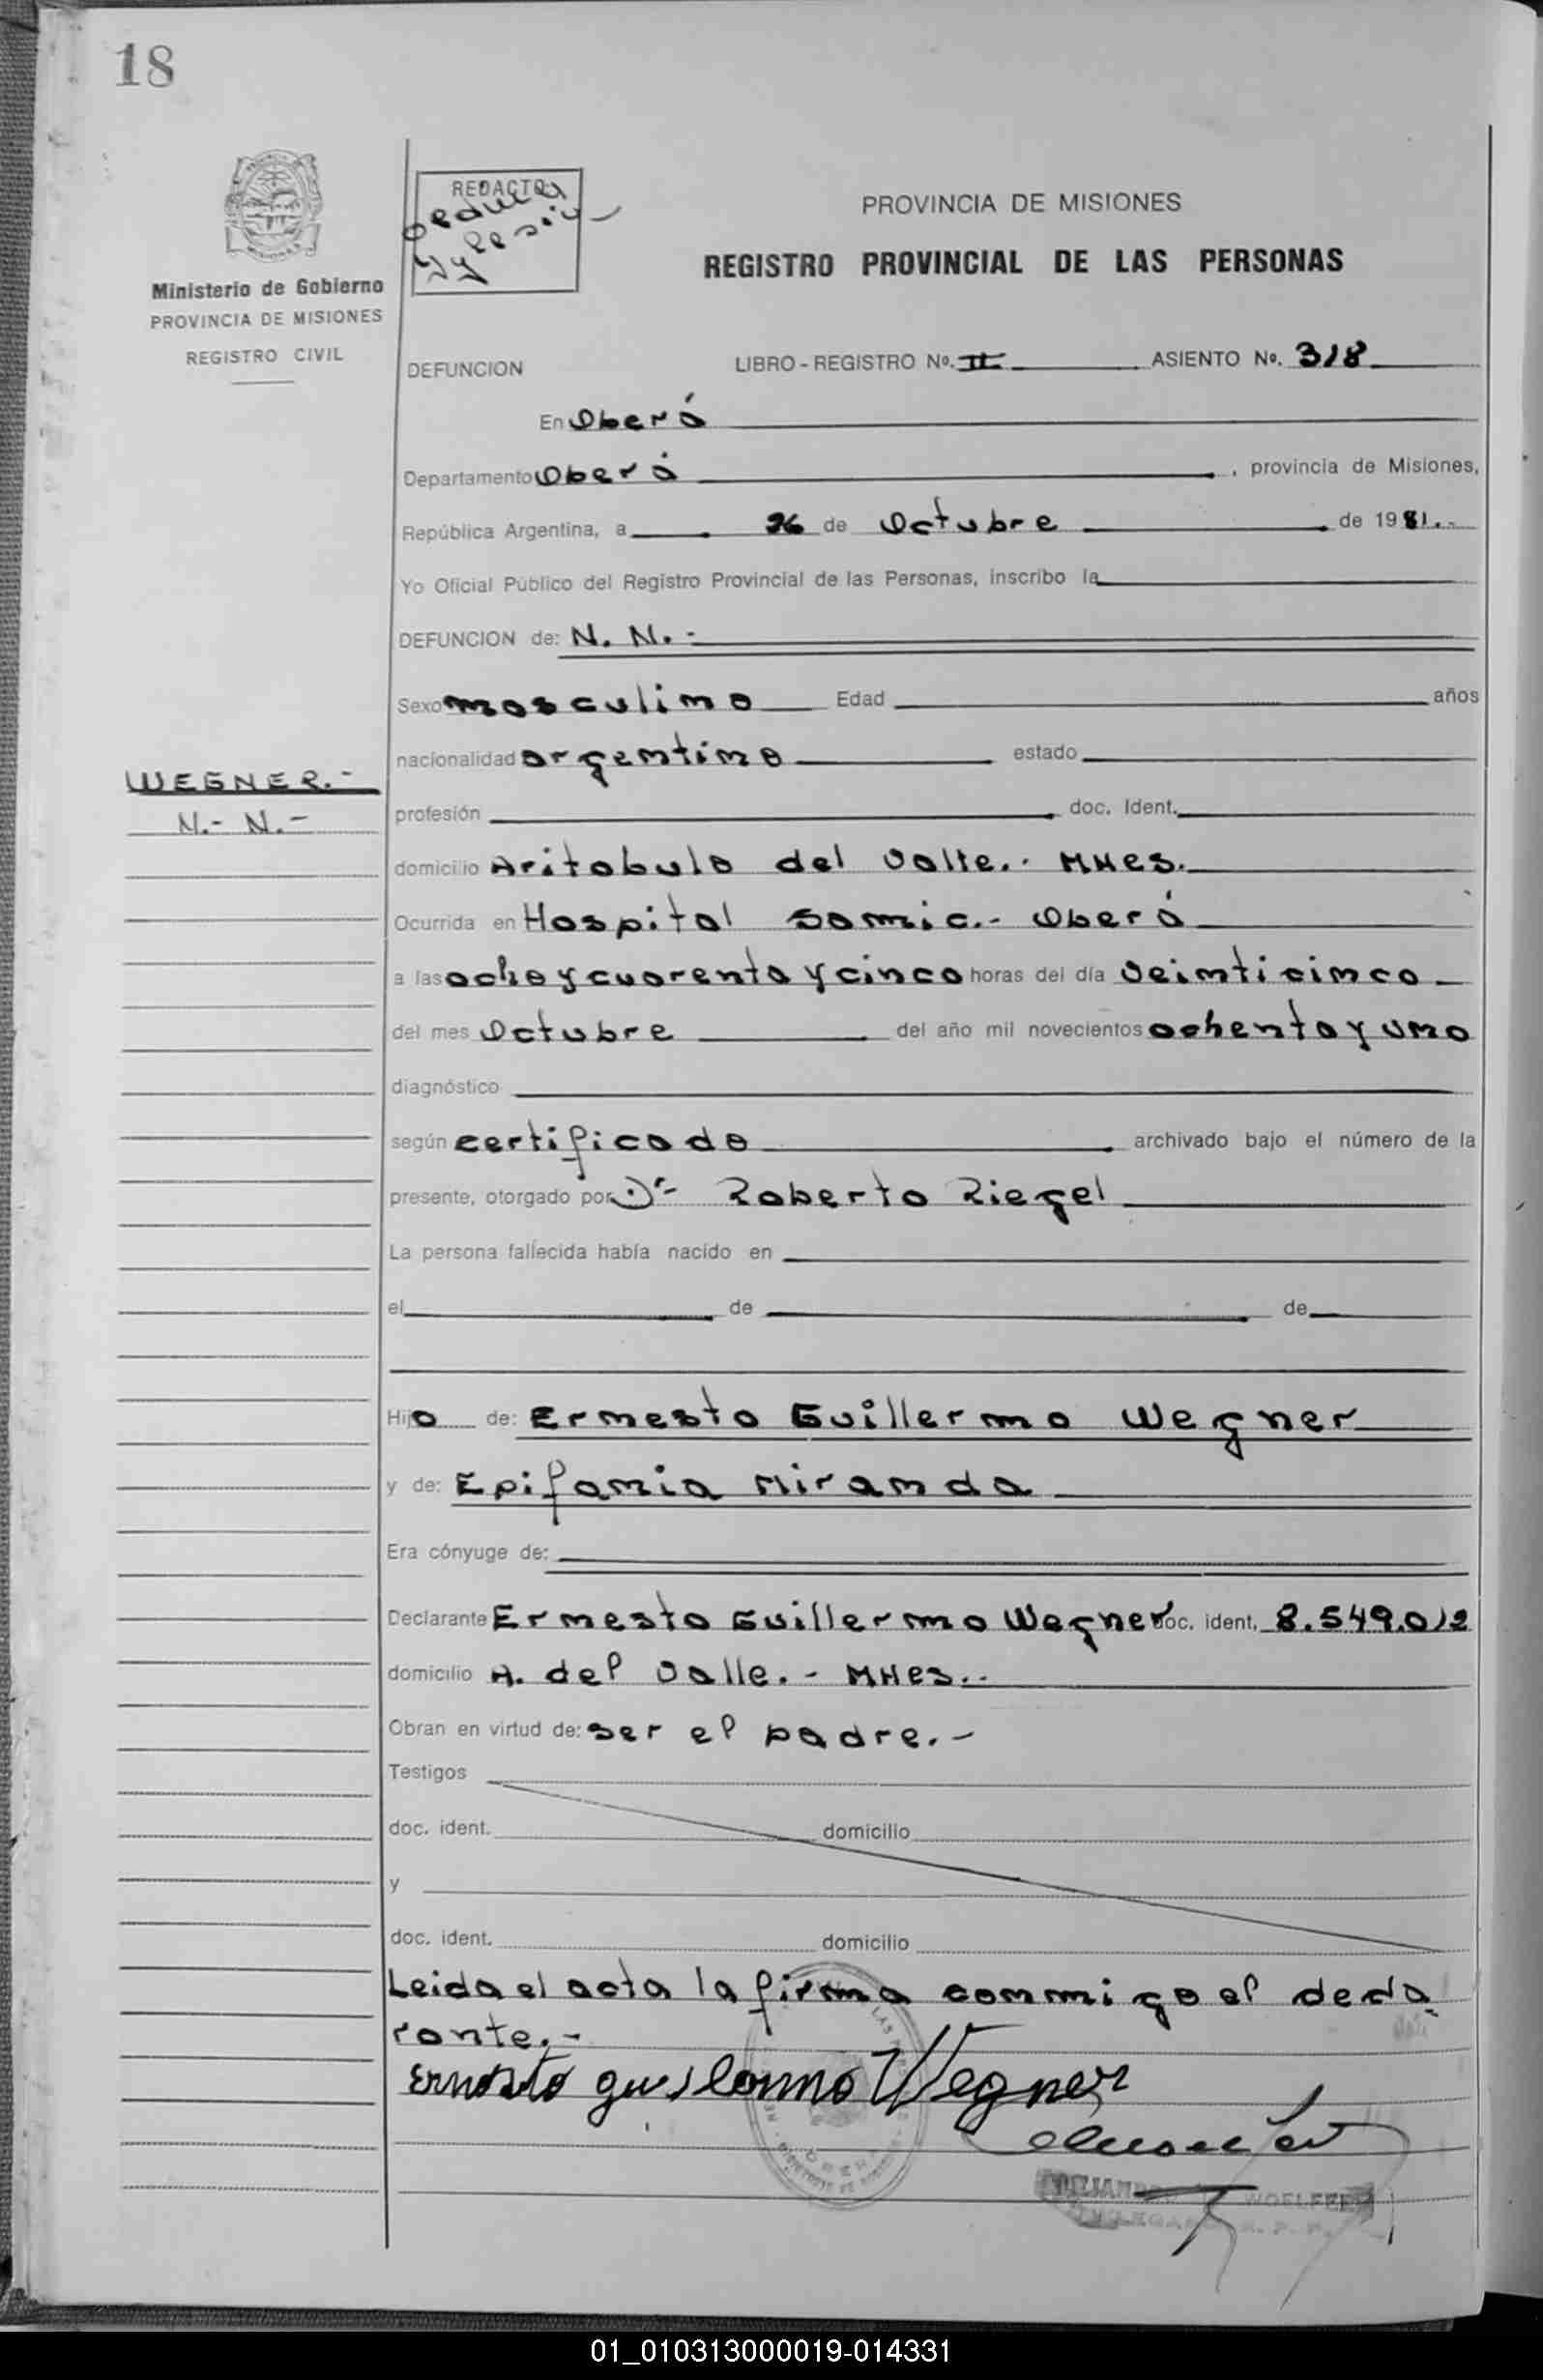 18
Ministerio de Gobierno
PROVINCIA DE MISIONES
REGISTRO CIVIL
REDACTO
PROVINCIA DE MISIONES
REGISTRO PROVINCIAL DE LAS PERSONAS
DEFUNCION LIBRO - REGISTRO No. II ASIENTO No. 318
En Oberá
Departamento Oberá , provincia de Misiones,
República Argentina, a 26 de Octubre de 1981.-
Yo Oficial Público del Registro Provincial de las Personas, inscribo la
DEFUNCION de: N. N.-
Sexo masculino Edad años
nacionalidad argentina estado
WEGNER.-
N.- N.-
profesión doc. Ident.
domicilio Aritobulo del Valle.- MNes.
Ocurrida en Hospital Samic.- Oberá
a las ocho y cuarenta y cinco horas del día veinticinco
del mes Octubre del año mil novecientos ochenta y uno
diagnóstico
según certificado archivado bajo el número de la
presente, otorgado por Dr Roberto Riegel
La persona fallecida había nacido en
el de de
Hijo de: Ernesto Guillermo Wegner
y de: Epifania Miranda
Era cónyuge de:
Declarante Ernesto Guillermo Wegner doc. ident. 8.549.012
domicilio A. del Valle.- MNes..
Obran en virtud de: ser el padre.-
Testigos
doc. ident. domicilio
y
doc. ident. domicilio
Leida el acta la firma conmigo el decla
rante.-
Ernesto guillermo Wegner
WOELFERT
01_010313000019-014331